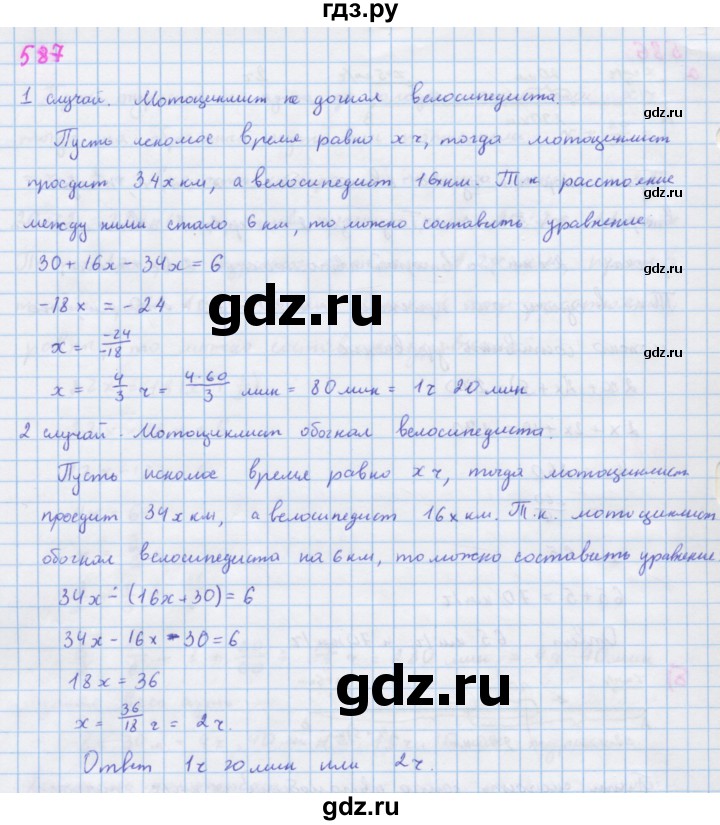 гдз.ру
587
1 случай. Мотоциклист не догнал велосипедиста.
Пусть искомое время равно x ч, тогда мотоциклист
проедит 34x км, а велосипедист 16x км. Т.к расстояние
между ними стало 6 км, то можно составить уравнение
30 + 16x - 34x = 6
-18x = -24
x = -24/-18
x = 4/3 ч = 4·60/3 мин = 80 мин = 1ч 20 мин
2 случай. Мотоциклист обогнал велосипедиста.
Пусть искомое время равно x ч, тогда мотоциклист
проедит 34x км, а велосипедист 16x км. Т.к. мотоциклист
обогнал велосипедиста на 6 км, то можно составить уравнение.
34x - (16x + 30) = 6
34x - 16x - 30 = 6
18x = 36
x = 36/18 ч = 2ч.
Ответ 1ч 20 мин или 2ч.
gdz.ru
gdz.ru
gdz.ru
gdz.ru
gdz.ru
gdz.ru
gdz.ru
gdz.ru
gdz.ru
gdz.ru